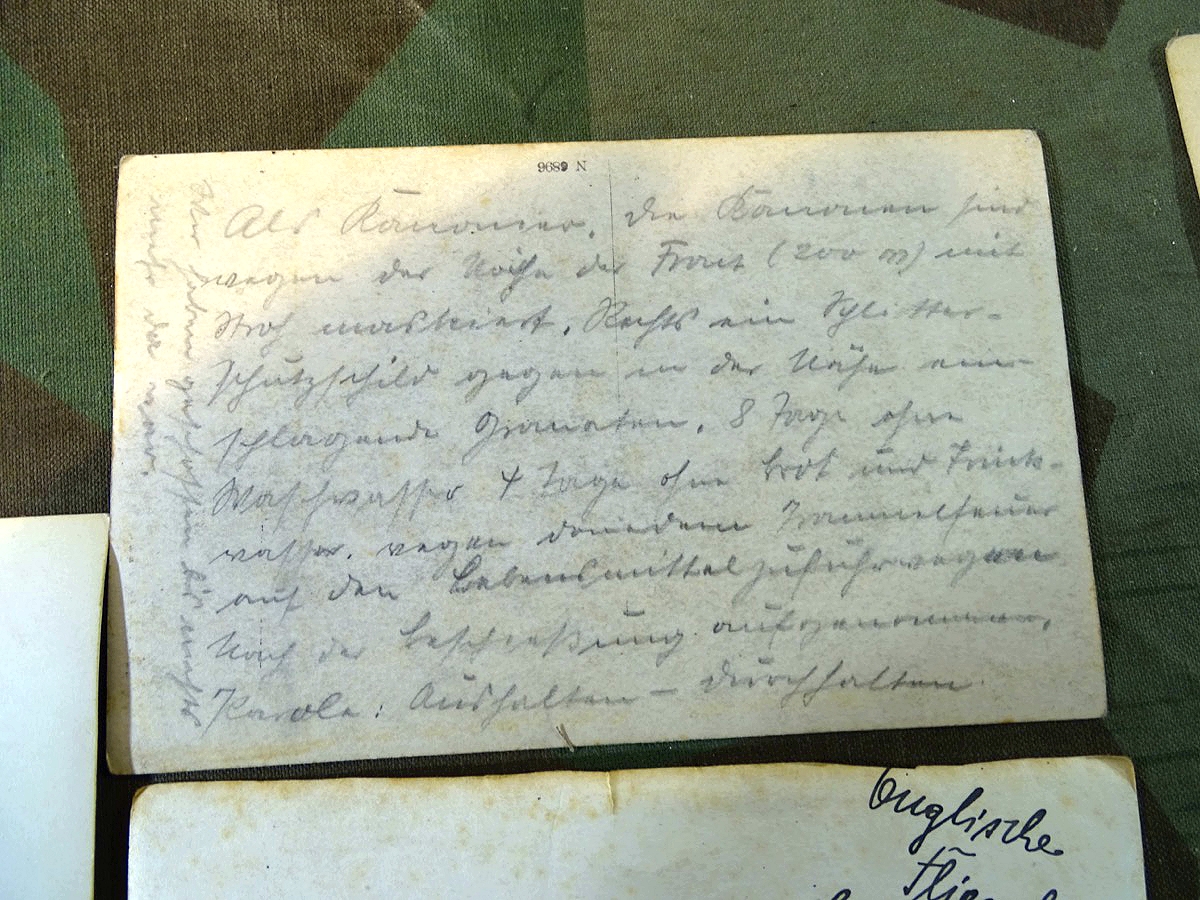 9689 N
Als Kanonier. Die Kanonen sind
wegen der Nähe der Front (200 m) mit
Stroh maskiert. Rechts ein Splitter-
schutzschild gegen in der Nähe ein-
schlagende Granaten. 8 Tage ohne
Waschwasser 4 Tage ohne Brot und Trink-
wasser. wegen dem Trommelfeuer
auf den Lebensmittelzufuhrwegen
Nach der Beschießung aufgenommen.
Parole: Aushalten – durchhalten
nichts da war.
Englische